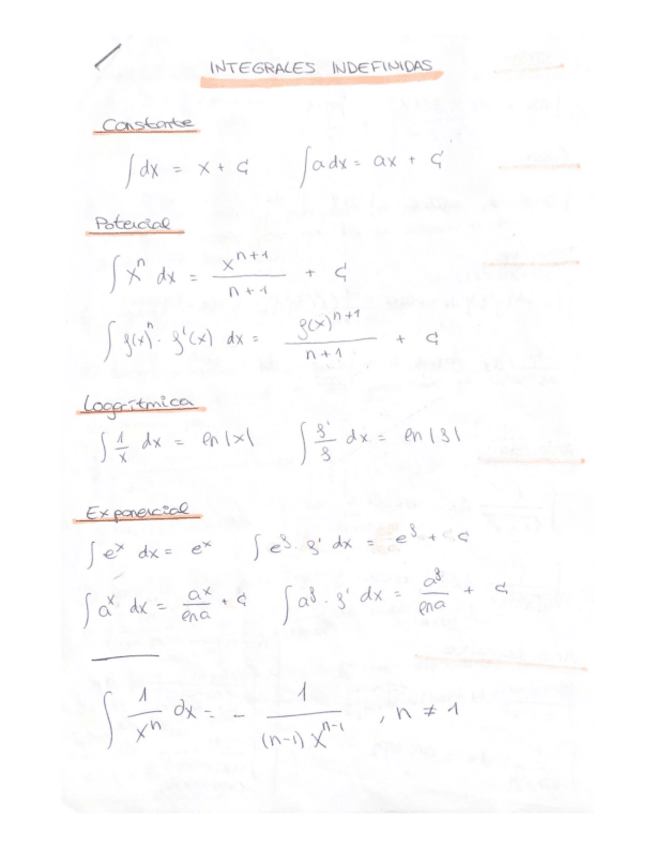 INTEGRALES INDEFINIDAS
Constante
∫ dx = x + C   ∫ a dx = ax + C
Potencial
∫ x^n dx = x^(n+1) / (n+1) + C
∫ f(x)^n · f'(x) dx = f(x)^(n+1) / (n+1) + C
Logarítmica
∫ 1/x dx = ln|x|   ∫ f'/f dx = ln|f|
Exponencial
∫ e^x dx = e^x   ∫ e^f · f' dx = e^f + C
∫ a^x dx = a^x / ln a + C   ∫ a^f · f' dx = a^f / ln a + C
∫ 1/x^n dx = - 1 / ((n-1) x^(n-1)) , n ≠ 1